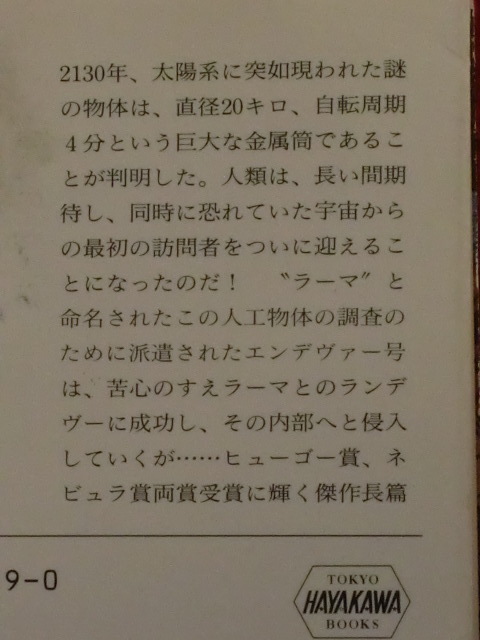 2130年、太陽系に突如現われた謎
の物体は、直径20キロ、自転周期
４分という巨大な金属筒であるこ
とが判明した。人類は、長い間期
待し、同時に恐れていた宇宙から
の最初の訪問者をついに迎えるこ
とになったのだ！　〝ラーマ〟と
命名されたこの人工物体の調査の
ために派遣されたエンデヴァー号
は、苦心のすえラーマとのランデ
ヴーに成功し、その内部へと侵入
していくが……ヒューゴー賞、ネ
ビュラ賞両賞受賞に輝く傑作長篇
9-0
TOKYO
HAYAKAWA
BOOKS